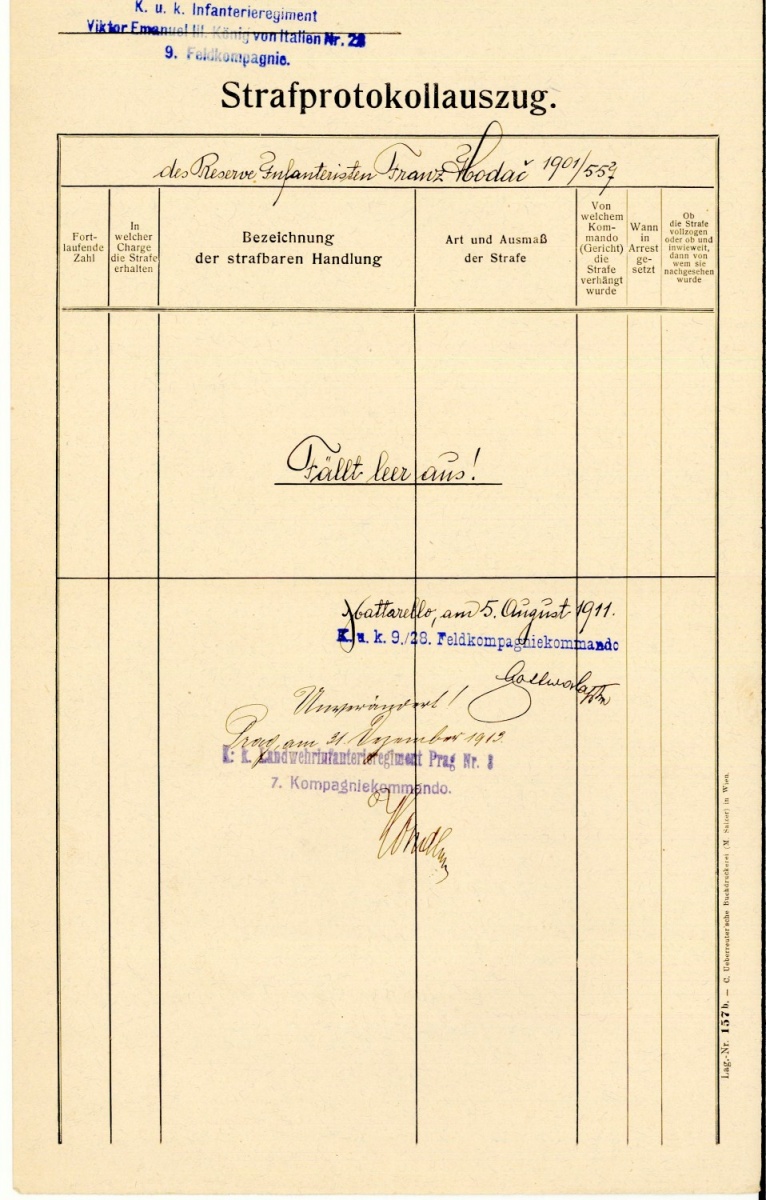 K. u. k. Infanterieregiment
Viktor Emanuel III. König von Italien Nr. 28
9. Feldkompagnie.
Strafprotokollauszug.
des Reserve Infanteristen Franz Hodač 1901/557
Fort-
laufende
Zahl
In
welcher
Charge
die Strafe
erhalten
Bezeichnung
der strafbaren Handlung
Art und Ausmaß
der Strafe
Von
welchem
Kom-
mando
(Gericht)
die
Strafe
verhängt
wurde
Wann
in
Arrest
ge-
setzt
Ob
die Strafe
vollzogen
oder ob und
inwieweit,
dann von
wem sie
nachgesehen
wurde
Fällt leer aus!
Mattarello, am 5. August 1911.
K. u. k. 9./28. Feldkompagniekommando
Unverändert!
Prag, am 31. Dezember 1913.
K. k. Landwehrinfanterieregiment Prag Nr. 8
7. Kompagniekommando.
Lag.-Nr. 157 b. — C. Ueberreuter'sche Buchdruckerei (M. Salzer) in Wien.